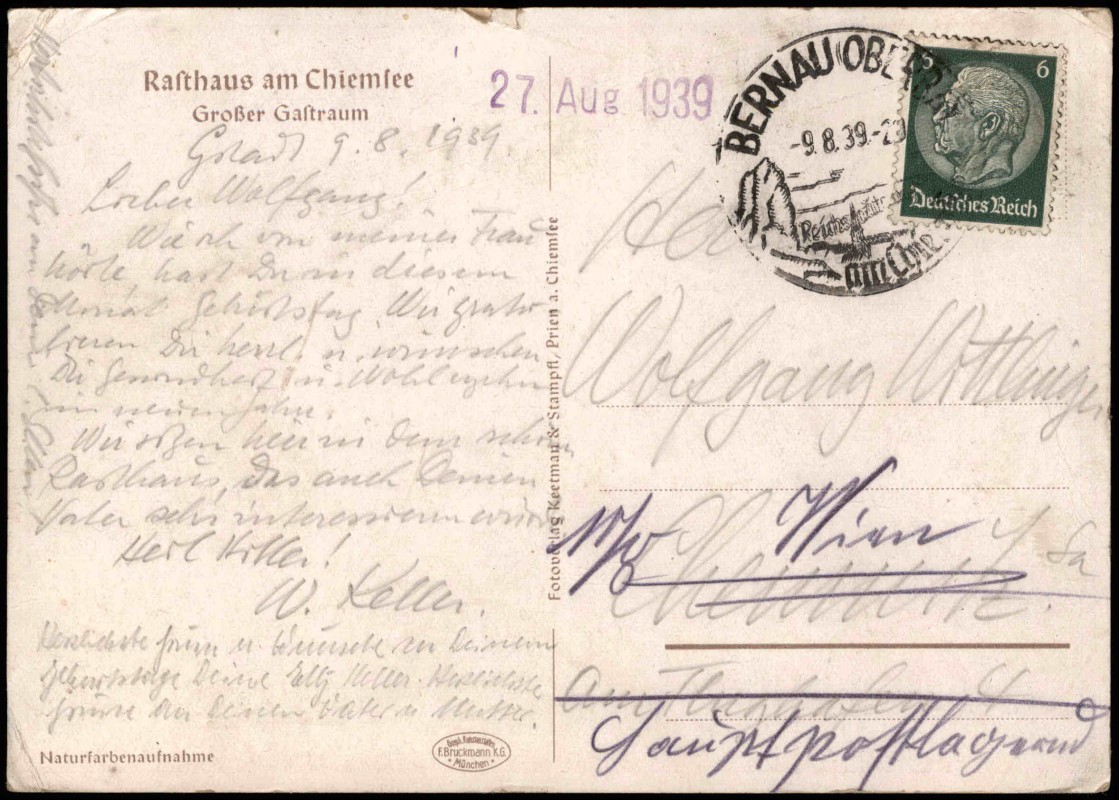 Rasthaus am Chiemsee
Großer Gastraum
Gstadt 9.8.1939.
Lieber Wolfgang!
Wie ich von meiner Frau
hörte hast Du in diesem
Monat Geburtstag. Wir gratu-
lieren Dir herzl. u. wünschen
Dir Gesundheit u. Wohlergehen
im neuen Jahre.
Wir sitzen hier in dem schönen
Rasthaus, das auch Deinen
Vater sehr interessieren würde
Heil Hitler!
W. Keller.
Herzlichste Grüsse u. Wünsche zu Deinem
Geburtstage Deine Elly Keller. Herzlichste
Grüsse an Deinen Vater u. Mutter.
Naturfarbenaufnahme
F. Bruckmann K.G.
München
Fotoverlag Keetman & Stampfl, Prien a. Chiemsee
27. Aug 1939
BERNAU (OBERBAY
-9.8.39.-
Reichs
am Chie
6
Deutsches Reich
Wolfgang
Wien
Chemnitz
Sa
Am Flughafen 4
Hauptpostlagernd